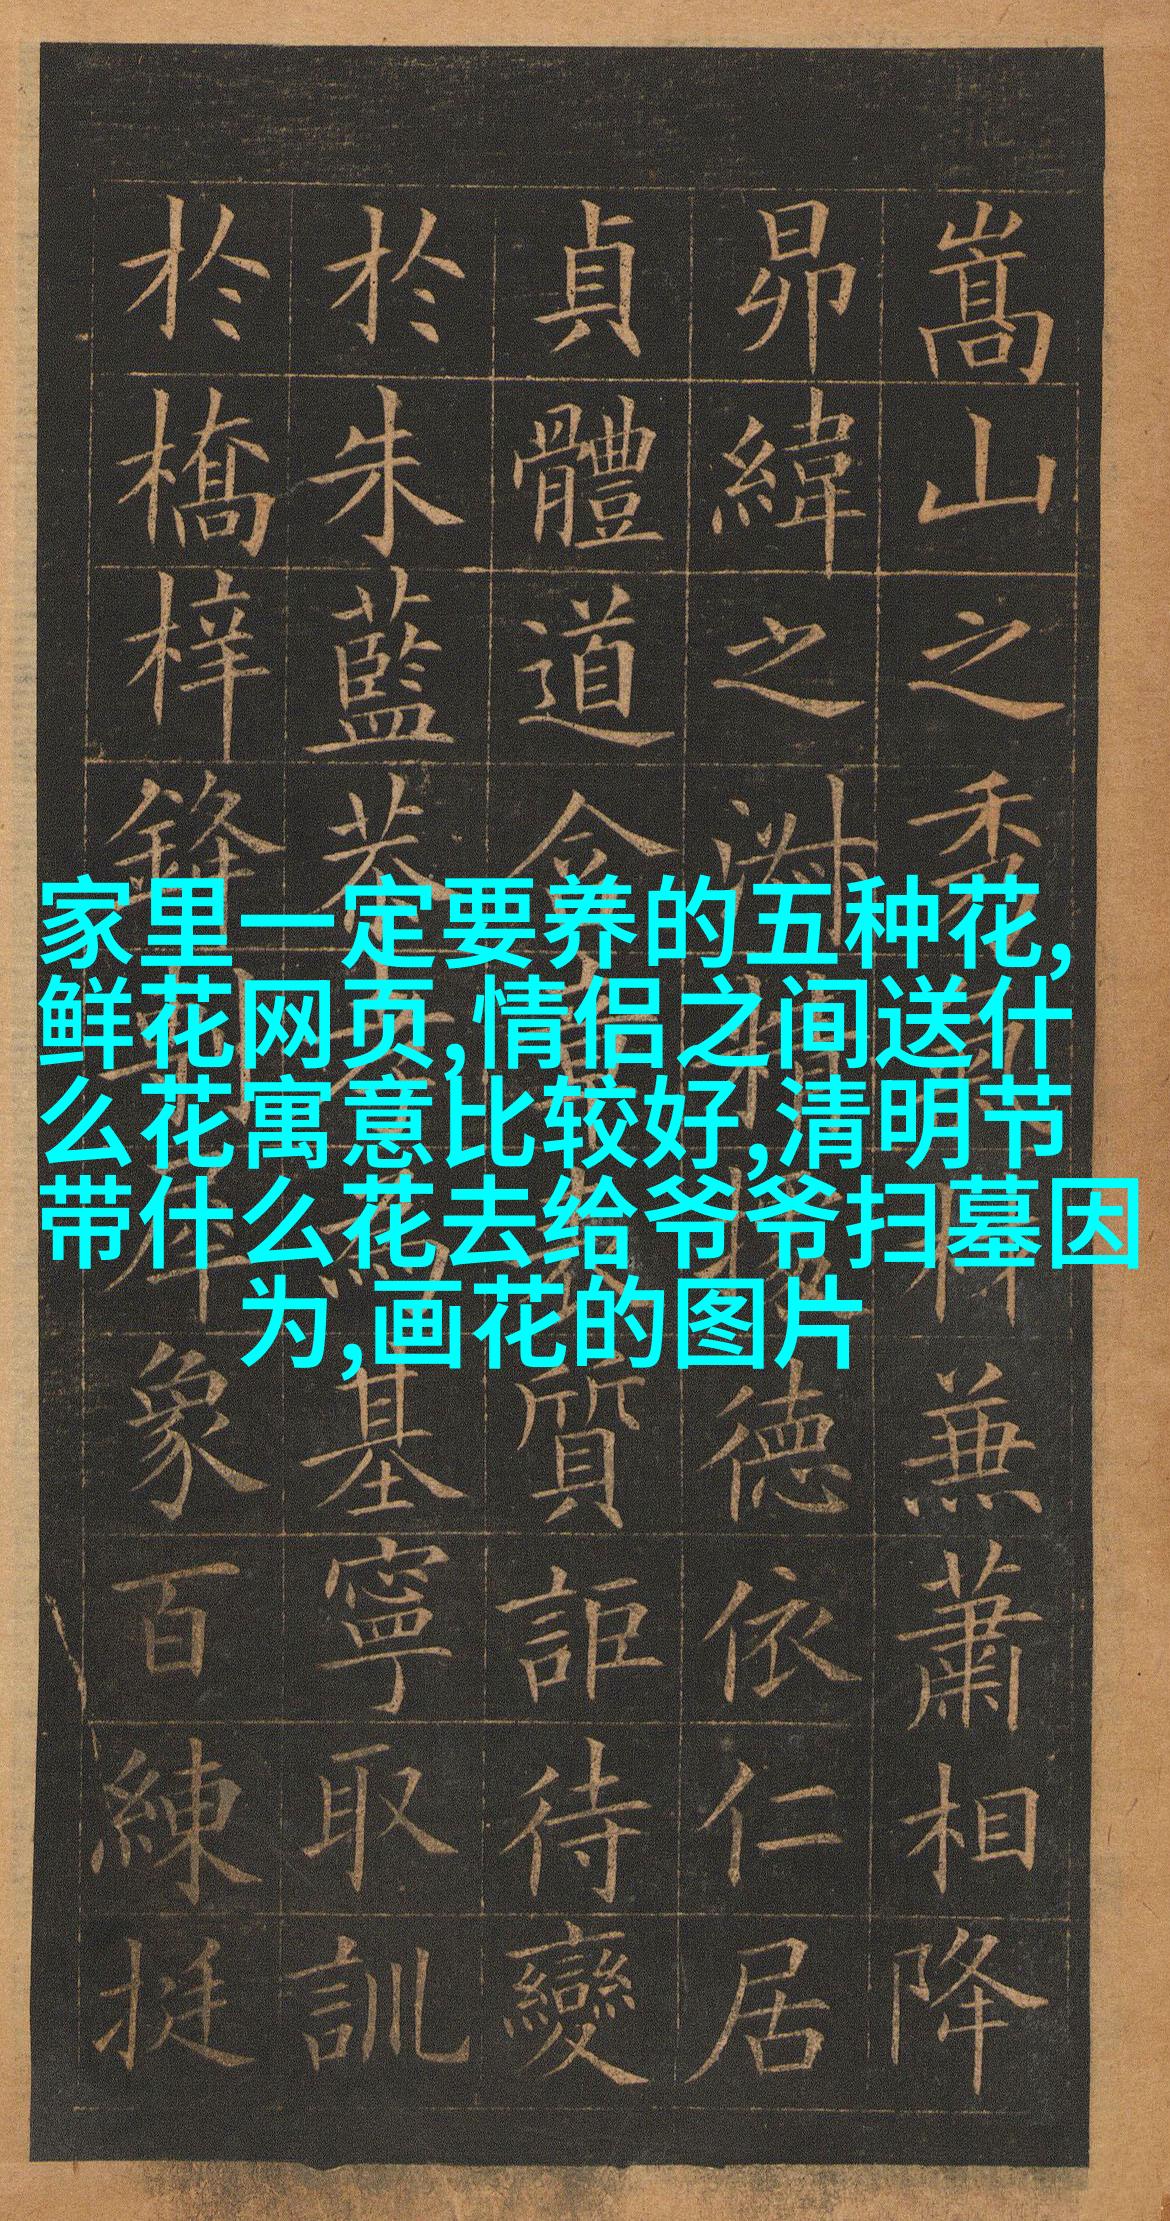 嵩山之秀兼蕭相降
昴緯之淑精據德依仁居
貞體道含質詎待變
於朱藍恭孝為基寧取訓
於橋梓鋒犀象百練挺
家里一定要养的五种花,
鲜花网页,情侣之间送什
么花寓意比较好,清明节
带什么花去给爷爷扫墓因
为,画花的图片